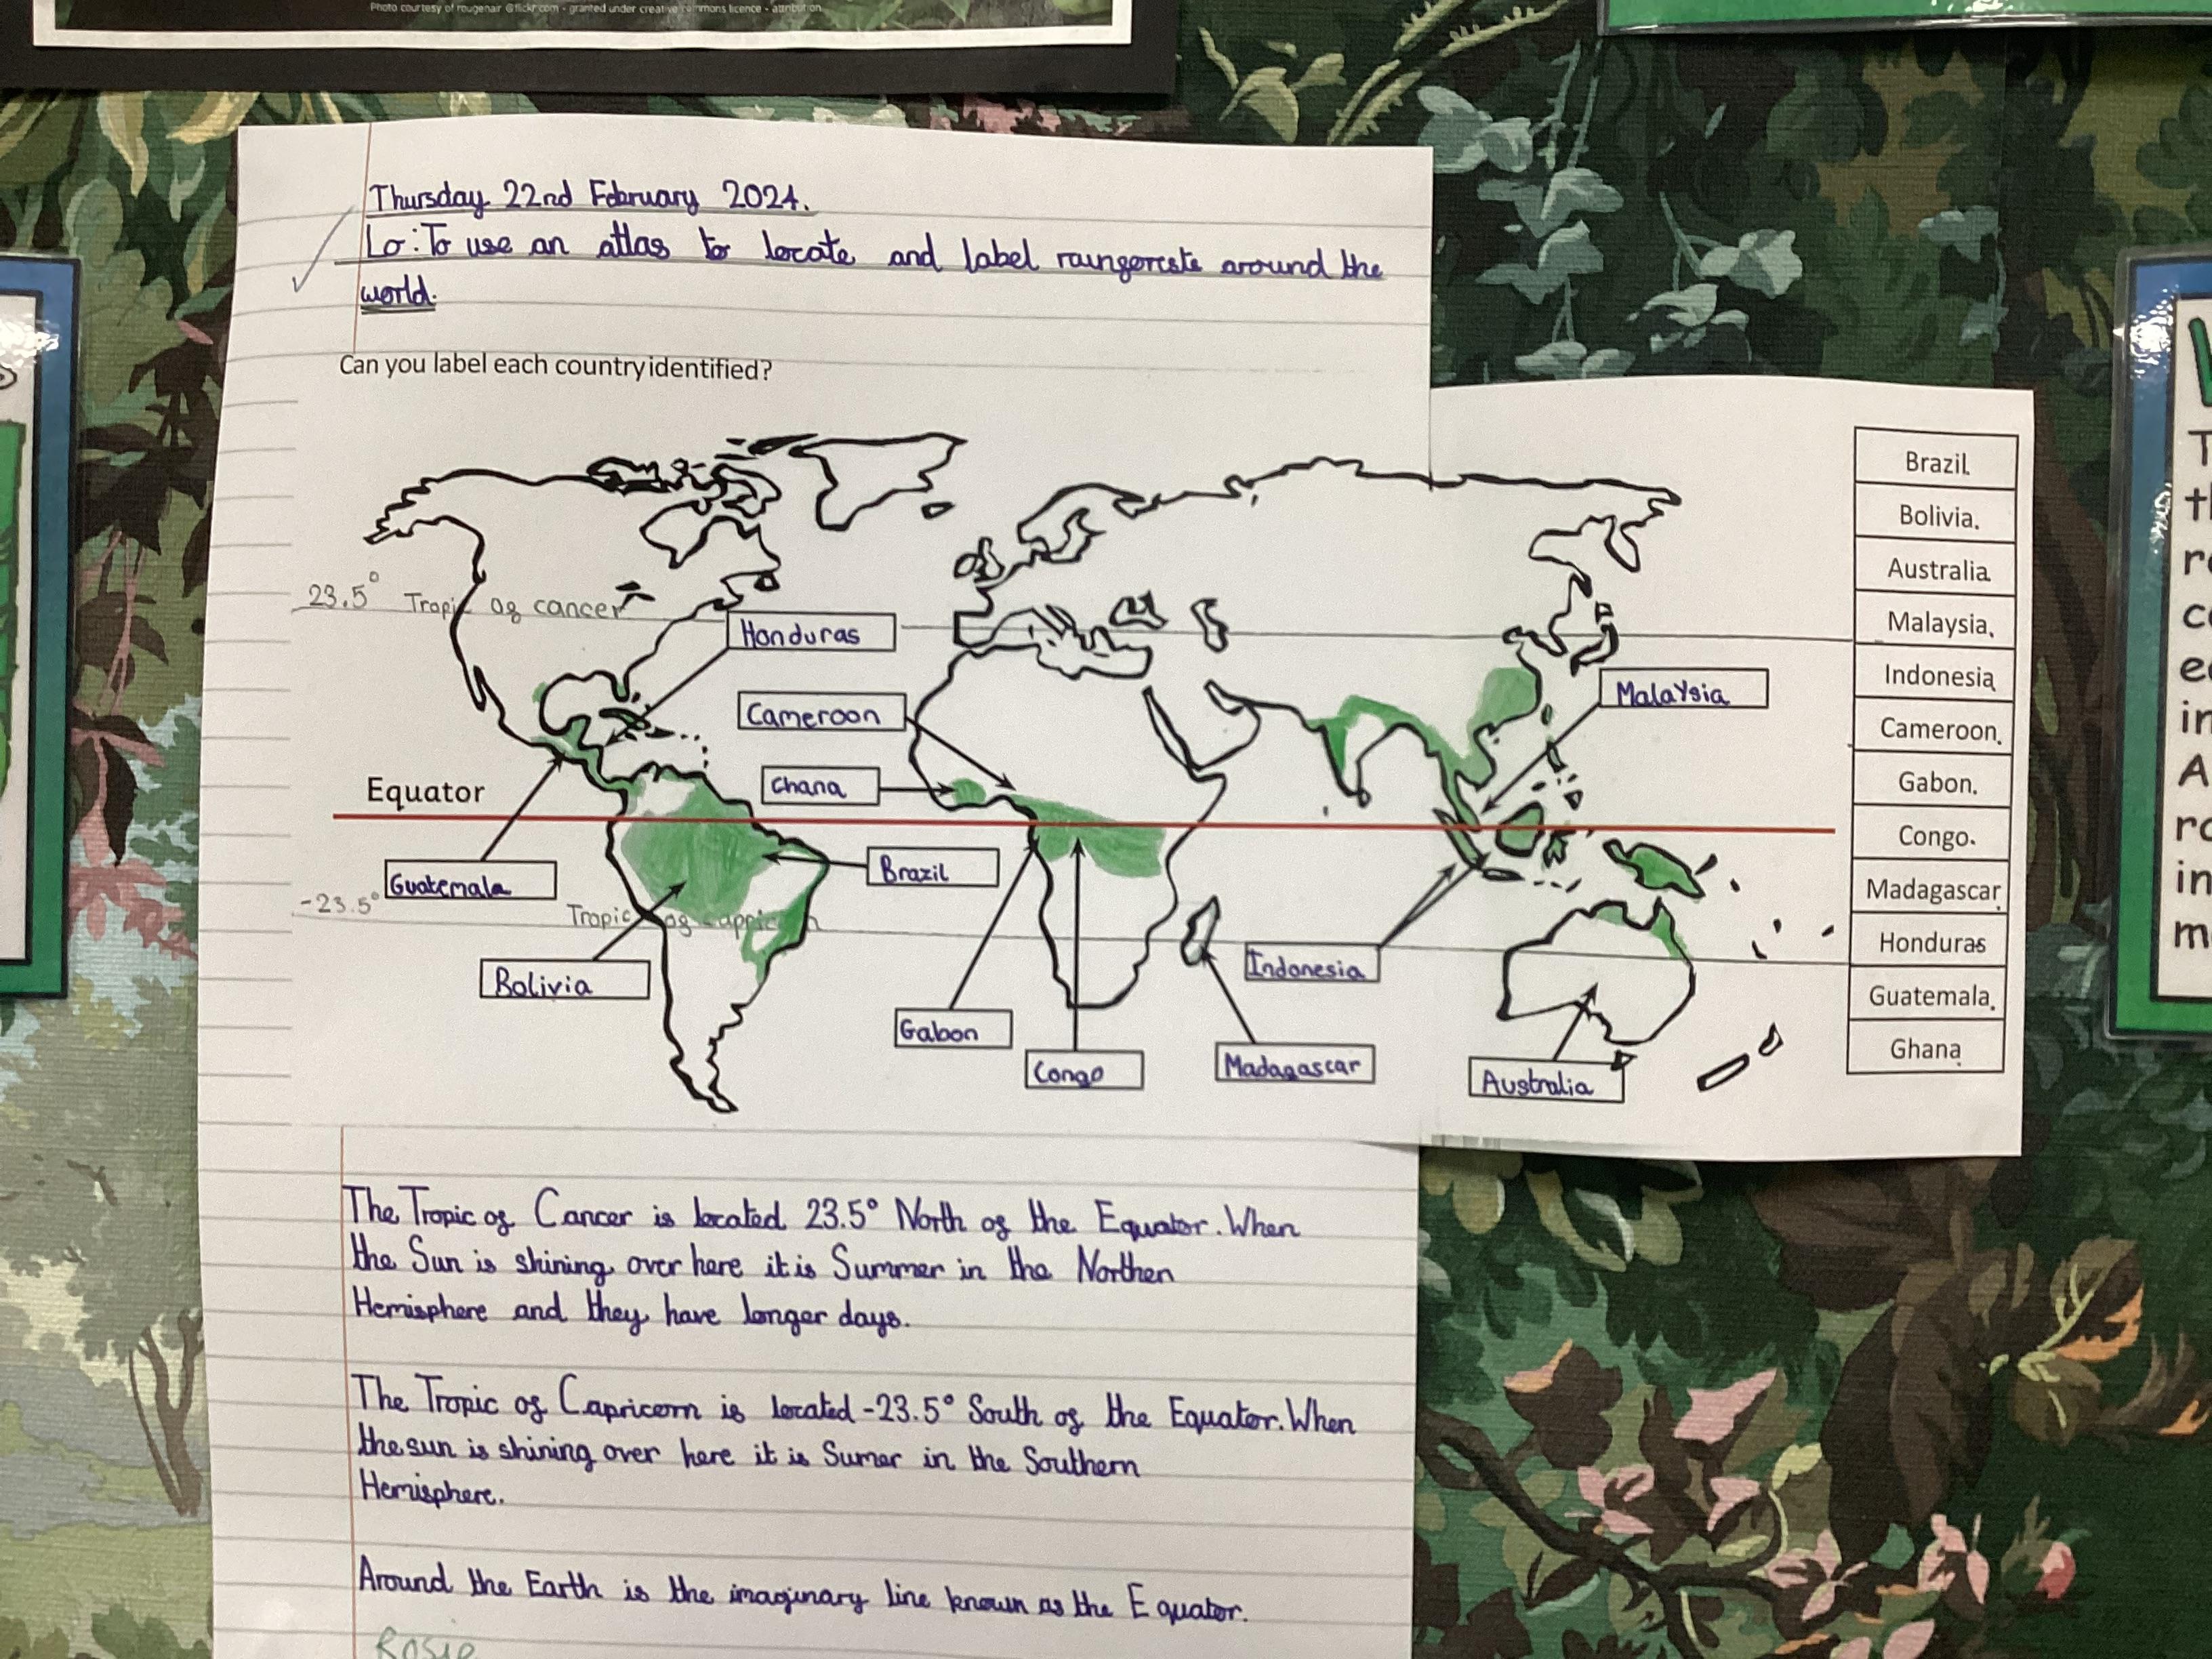 Photo courtesy of rougenair @flickr.com - granted under creative commons licence - attribution
Thursday 22nd February 2024.
Lo: To use an atlas to locate and label raingorests around the
world.
Can you label each country identified?
23.5° Tropic og cancer
Honduras
Cameroon
Ghana
Malaysia
Equator
Guatemala
Brazil
-23.5° Tropic og
Bolivia
Indonesia
Gabon
Congo
Madagascar
Australia
Brazil.
Bolivia.
Australia.
Malaysia.
Indonesia.
Cameroon.
Gabon.
Congo.
Madagascar.
Honduras.
Guatemala.
Ghana.
The Tropic og Cancer is located 23.5° North og the Equator. When
the Sun is shining over here it is Summer in the Northen
Hemisphere and they have longer days.
The Tropic og Capricorn is located -23.5° South og the Equator. When
the sun is shining over here it is Sumer in the Southern
Hemisphere.
Around the Earth is the imaginary line known as the Equator.
Rosie